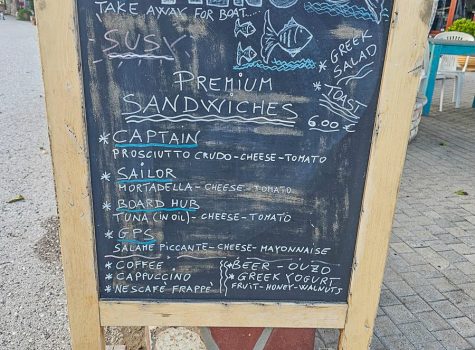 TAKE AWAY FOR BOAT....
SUSY
* GREEK
SALAD
* TOAST
6.00 €
PREMIUM
SANDWICHES
* CAPTAIN
PROSCIUTTO CRUDO - CHEESE - TOMATO
* SAILOR
MORTADELLA - CHEESE - TOMATO
* BOARD HUB
TUNA (IN OIL) - CHEESE - TOMATO
* GPS
SALAME PICCANTE - CHEESE - MAYONNAISE
* COFFEE
* CAPPUCCINO
* NESCAFÈ FRAPPE
* BEER - OUZO
* GREEK YOGURT
FRUIT - HONEY - WALNUTS